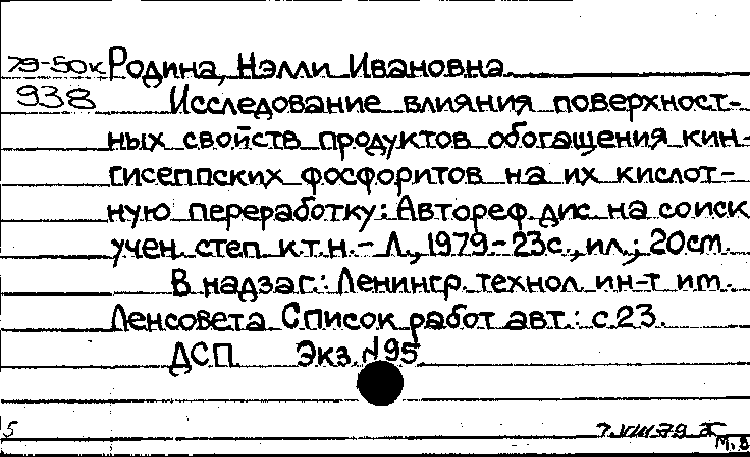 79-50к Родина, Нэлли Ивановна
938 Исследование влияния поверхност-
ных свойств продуктов обогащения кин-
гисеппских фосфоритов на их кислот-
ную переработку: Автореф. дис. на соиск
учен. степ. к.т.н. - Л., 1979 - 23с., ил.; 20 см.
В надзаг.: Ленингр. технол. ин-т им.
Ленсовета. Список работ авт.: с.23.
ДСП. Экз. №95
5 7.VIII.79
М.В